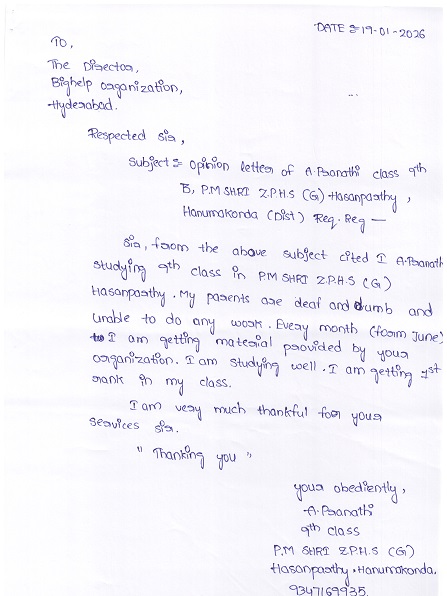 DATE :- 19-01-2026
To,
The Director,
Bighelp organization,
Hyderabad.
Respected sir,
Subject :- opinion letter of A.Pranathi class 9th
B, P.M SHRI Z.P.H.S (G) - Hasanparthy,
Hanumakonda (Dist) Req. Reg —
Sir, from the above subject cited I A.Pranathi
studying 9th class in P.M SHRI Z.P.H.S (G)
Hasanparthy. My parents are deaf and dumb and
unable to do any work. Every month (form June)
I am getting material provided by your
organization. I am studying well. I am getting 1st
rank in my class.
I am very much thankful for your
services sir.
" Thanking you "
your obediently,
A.Pranathi
9th class
P.M SHRI Z.P.H.S (G)
Hasanparthy, Hanumakonda.
9347169935.